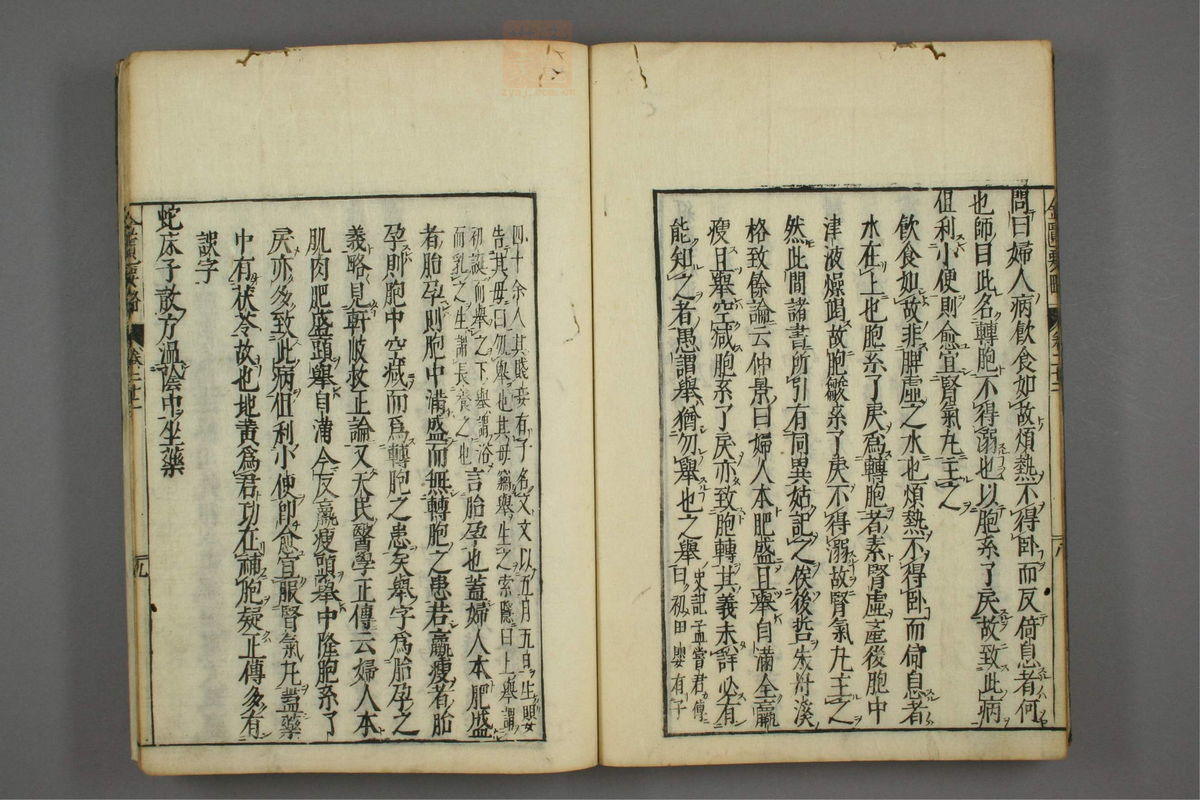 問曰婦人病飲食如故煩熱不得卧而反倚息者何
也師曰此名轉胞不得溺也以胞系了戾故致此病
但利小便則愈宜腎氣丸主之
飲食如故非脾虛之水也煩熱不得卧而倚息者
水在上也胞系了戾爲轉胞者素腎虛產後胞中
津液燥竭故胞系了戾不得溺故腎氣丸主之
然此間諸書所引有同異姑記之俟後哲朱丹溪
格致餘論云仲景曰婦人本肥盛且舉自滿全羸
瘦且舉空減胞系了戾亦致胞轉其義未詳必有
能知之者愚謂舉猶勿舉也之舉
史記孟嘗君傳
曰初田嬰有子
四十余人其賤妾有子名文文以五月五日生嬰
告其母曰勿舉也其母竊舉生之索隱曰上舉謂
初誕而舉之下舉謂浴
而乳之生謂長養之也
言胎孕也蓋婦人本肥盛
者胎孕則胞中滿盛而無轉胞之患若羸瘦者胎
孕則胞中空減而爲轉胞之患矣舉字爲胎孕之
義略見軒岐救正論又天民醫學正傳云婦人本
肌肉肥盛頭舉自滿今反羸瘦頭舉中隆胞系了
戾亦多致此病但利小便即愈宜服腎氣丸蓋藥
中有茯苓故也地黄爲君功在補胞疑正傳多有
誤字
蛇床子散方溫陰中坐藥
金匱要略
卷二十二
八
九